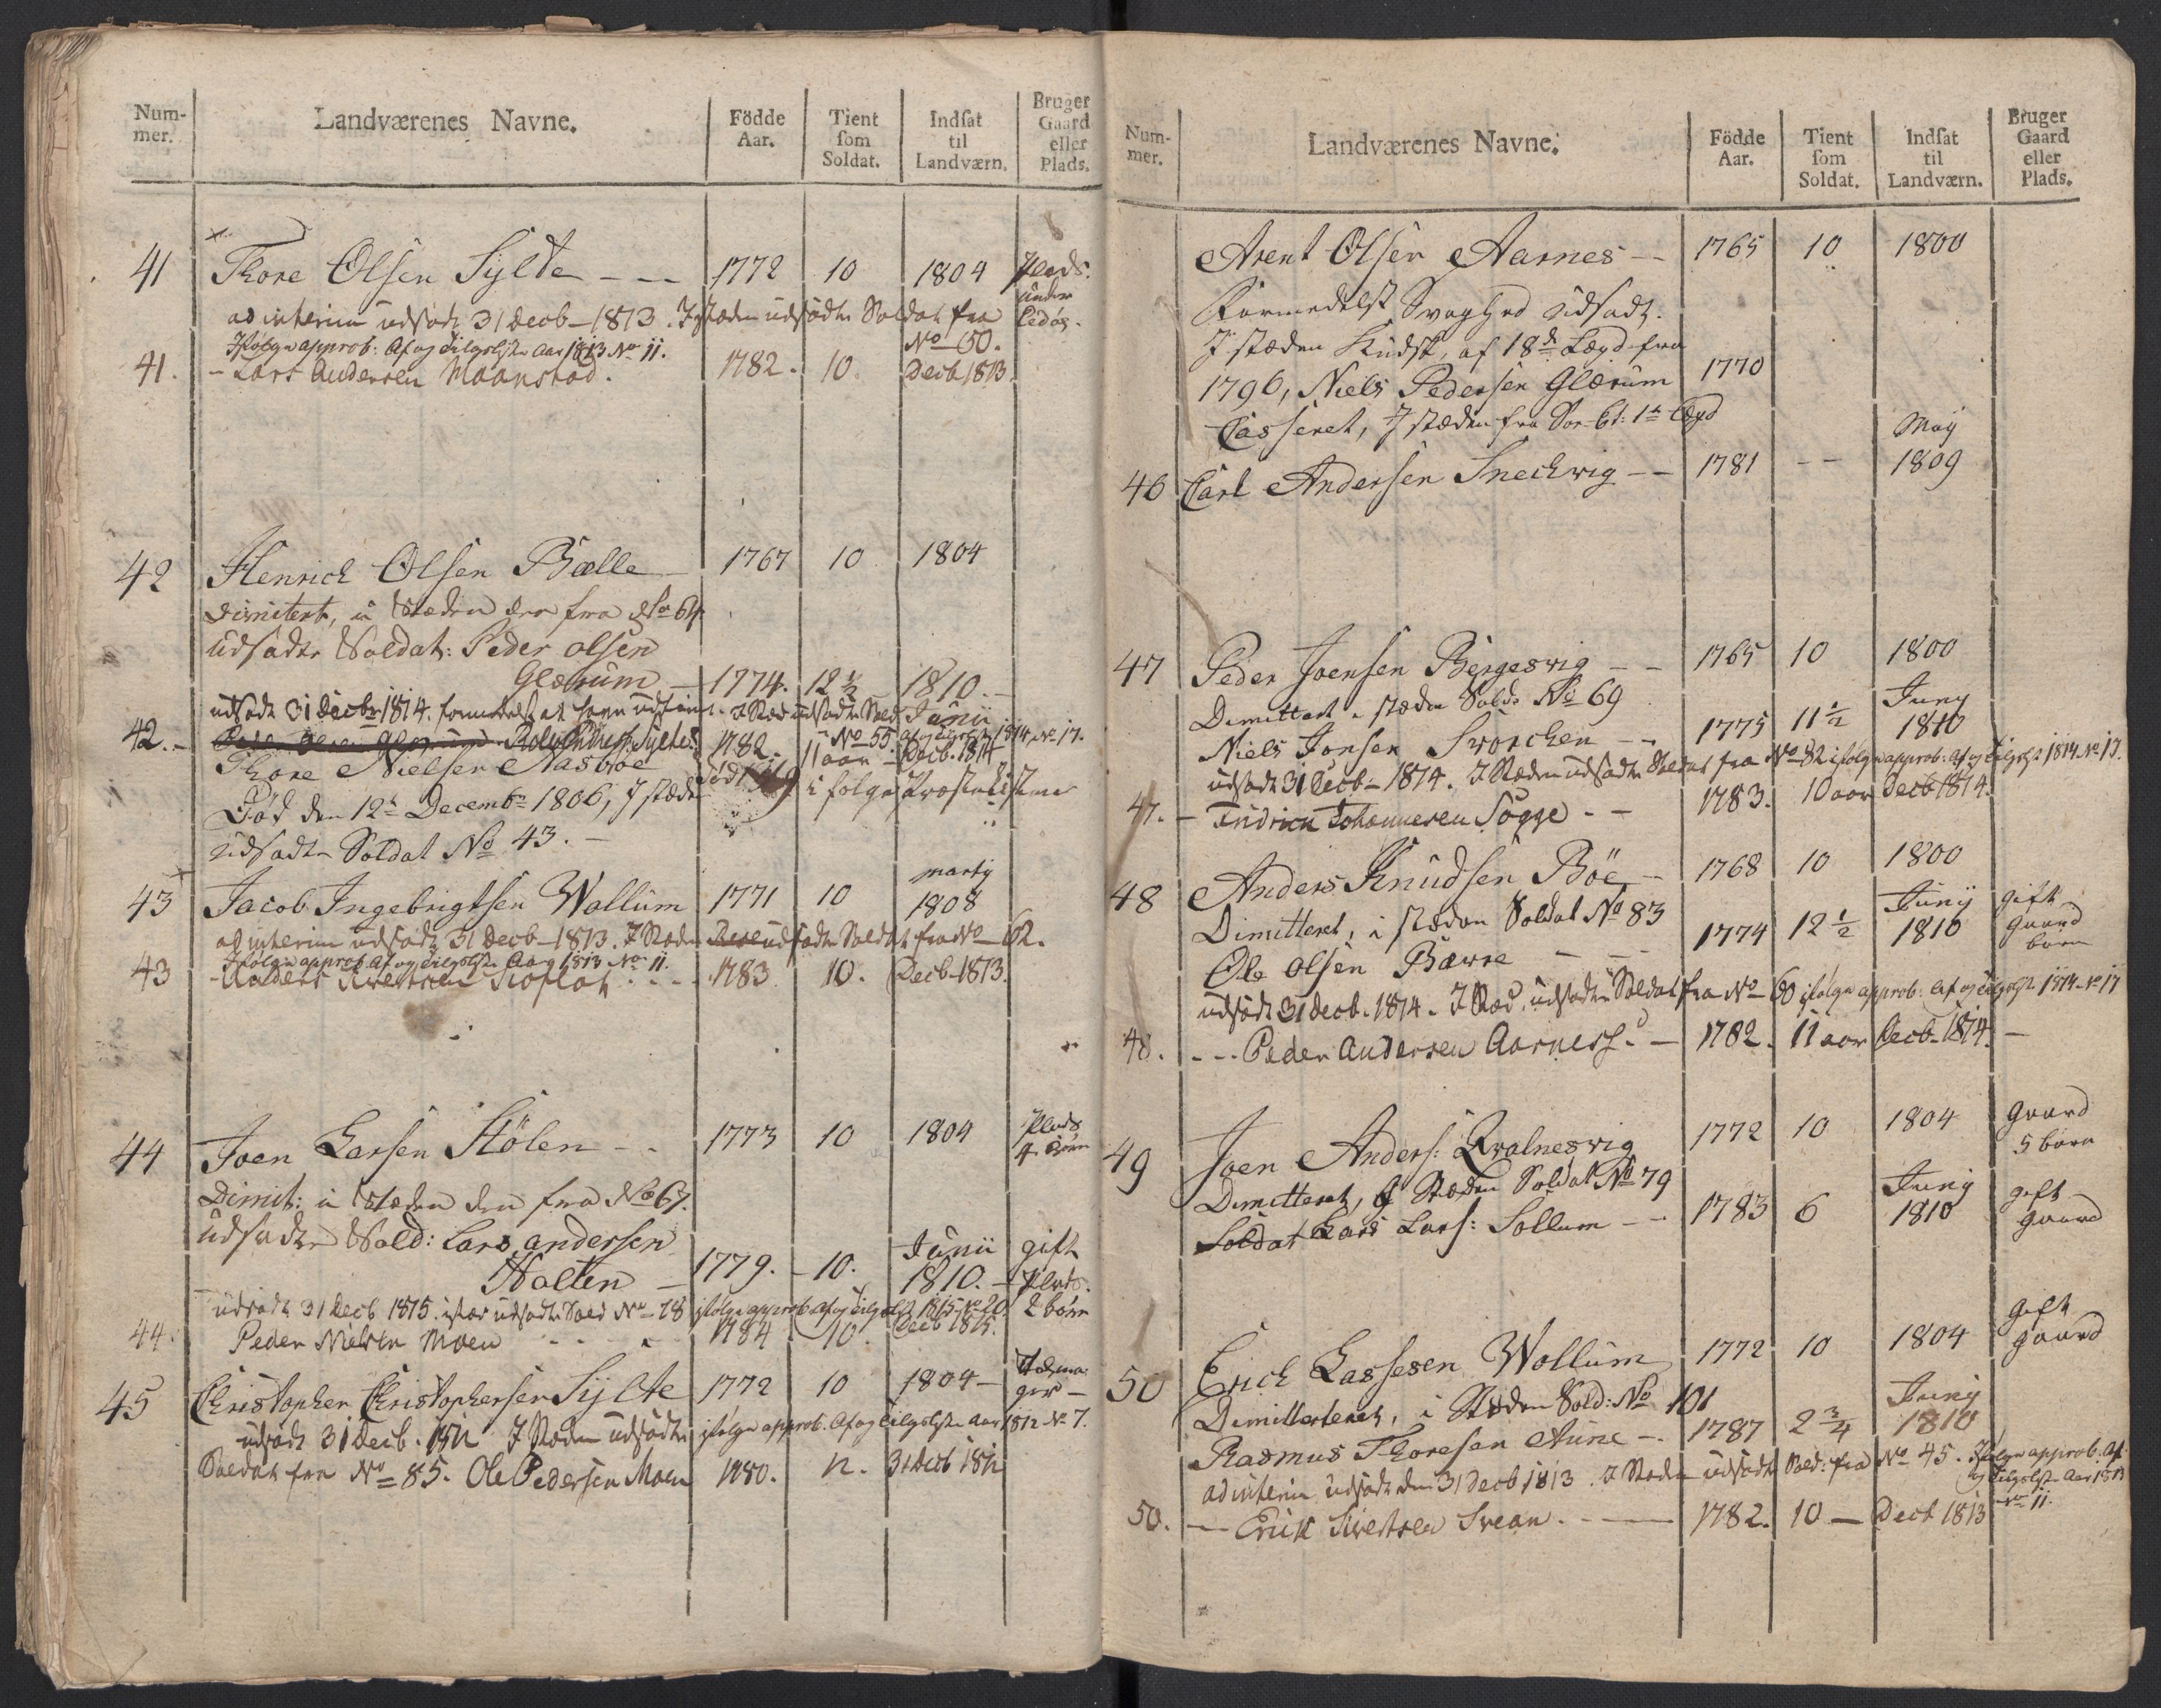 Num-
mer.
Landværenes Navne.
Födde
Aar.
Tient
som
Soldat.
Indsat
til
Landværn.
Bruger
Gaard
eller
Plads.
41 Thore Olsen Sylte - - - 1772 10 1804 Plads.
under
ad interim udsadt 31 Decb - 1813. I stæden udsadte Soldat fra
No 60.
Ifølge approb: Af og Tilgslste Aar 1813 No 11.
41. - Lars Andersen Maanstad. 1782. 10. Decb 1813.
42 Henrich Olsen Bælle 1767 10 1804
Dimitert, i Stæden den fra No 64
udsadte Soldat: Peder olsen
Glærum - 1774. 12 1/2 1810. -
Junii
udsadt 31 Decbr 1814. formedelst at have udtient. I Stæd udsadte Sold
No 55. Af og Tilgslste 1814 No 17.
42. - 1782. 11 aar - Decb. 1814
Thore Nielsen Nasboe
Fød den 12te Decembr 1806, I stæden
udsadte Soldat No 43. -
43 Jacob Ingebrigtsen Wollum 1771 10 marty
1808
ad interim udsadt 31 Decb - 1813. I Stæden udsadte Soldat fra No - 62.
Ifølge approb Af og Tilgslste Aar 1813 No 11.
43 - Anders Sivertsen 1783 10. Decb - 1813.
44 Joen Larsen Stölen - - 1773 10 1804 Plads
4 börn
Dimit: i Stæden den fra No 67.
udsadte Sold: Lars andersen
Holten - 1779. - 10. Junii
1810. - gift
Plads.
2 börn
udsadt 31 Decb 1815. istæd udsadte Sold No - 78 ifølge approb Af og Tilgslst 1815 No 20
44. Peder Nielsen Moen 1784 10. Decb 1815.
45 Christopher Christophersen Sylte 1772 10 1804 -
udsadt 31 Decb. 1812 I Stæden udsadte ifølge approb. Af og Tilgslste Aar 1812 No 7.
Soldat fra No 85. Ole Pedersen Moen 1780. 12. 31 Decb 1812
Num-
mer.
Landværenes Navne.
Födde
Aar.
Tient
som
Soldat.
Indsat
til
Landværn.
Bruger
Gaard
eller
Plads.
Arent Olsen Aarnes - - 1765 10 1800
Formedelst Svaghed udsadt.
I stæden Kudsk, af 18de Lægd fra
1796, Niels Pedersen Glærum 1770
Casseret, I stæden fra 1te Lægd
46 Carl Andersen Snechvig - - 1781 - - May
1809
47 Peder Joensen Bergesvig - - 1765 10 1800
Dimittert i stæden Sold: No 69
Niels Jonsen Svorchen - - 1775 11 1/2 Juny
1810
udsadt 31 Decb - 1814. I Stæden udsadte Soldat fra No 82 ifølge approb. Af og Tilgslst 1814 No 17.
47. - Endrich Johannesen Sogge - - 1783. 10 aar Decb 1814.
48 Anders Knudsen Böe - 1768 10 1800
Dimitteret, i stæden Soldat No 83
Ole Olsen Bævre - - 1774 12 1/2 Junij
1810 gift
gaard
börn
udsadt 31 Decb. 1814. I Stæd. udsadte Soldat fra No 60 ifølge approb: Af og Tilgslst 1814 No 17
48. - - - Peder Andersen Aarness. - 1782. 11 aar Decb - 1814. -
49 Joen Anders: Qvalnesvig 1772 10 1804 gaard
5 börn
Dimitteret, I Stæden Soldat No 79
Soldat Lars Lars: Sollum - - 1783 6 Juny
1810 gift
gaard
50 Erich Lassesen Wollum 1772 10 1804 gift
gaard
Dimitterteret, i Stæden Sold: No 101
Rasmus Thoresen Aune - . 1787 2 3/4 Junij
1810
ad interim udsadt den 31 Decb 1813. I Stæden udsadte Sold: fra No 45. Ifølge approb. Af
og Tilgslste Aar 1813
No 11.
50. - Erick Sivertsen Svean. - - 1782. 10 - Decb 1813